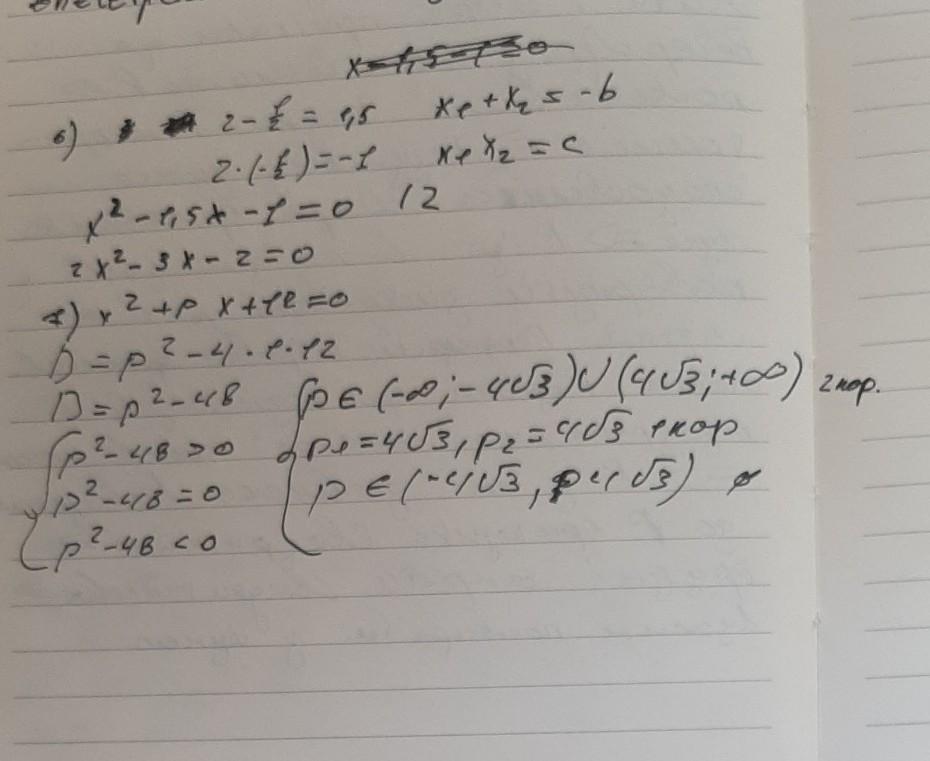 6) 2 - 1/2 = 1,5 x₁ + x₂ = -b
2·(-1/2) = -1 x₁ x₂ = c
x² - 1,5x - 1 = 0 | 2
2x² - 3x - 2 = 0
7) x² + p x + 12 = 0
D = p² - 4 · 1 · 12
D = p² - 48
p² - 48 > 0
p² - 48 = 0
p² - 48 < 0
p ∈ (-∞; -4√3) ∪ (4√3; +∞) 2 кор.
p₁ = 4√3, p₂ = 4√3 1 кор
p ∈ (-4√3, 4√3) ø